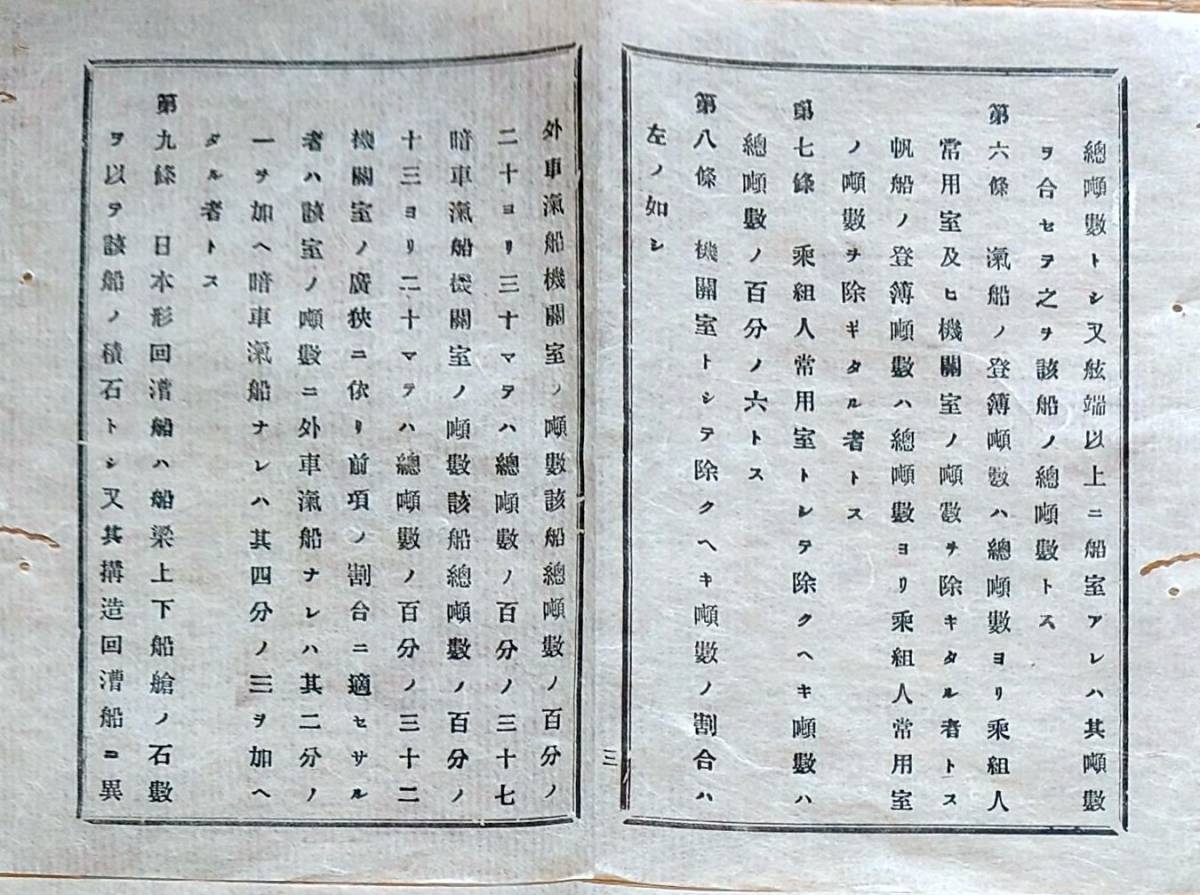 總噸數トシ又舷端以上ニ船室アレハ其噸數
ヲ合セヲ之ヲ該船ノ總噸數トス
第六條　滊船ノ登簿噸數ハ總噸數ヨリ乘組人
常用室及ヒ機關室ノ噸數ヲ除キタル者トス
帆船ノ登簿噸數ハ總噸數ヨリ乘組人常用室
ノ噸數ヲ除ギタル者トス
第七條　乘組人常用室トシテ除クヘキ噸數ハ
總噸數ノ百分ノ六トス
第八條　機關室トシテ除クヘキ噸數ノ割合ハ
左ノ如シ
三
外車滊船機關室ノ噸數該船總噸數ノ百分ノ
二十ヨリ三十マヲハ總噸數ノ百分ノ三十七
暗車滊船機關室ノ噸數該船總噸數ノ百分ノ
十三ヨリ二十マテハ總噸數ノ百分ノ三十二
機關室ノ廣狹ニ依リ前項ノ割合ニ適セサル
者ハ該室ノ噸數ニ外車滊船ナレハ其二分ノ
一ヲ加ヘ暗車滊船ナレハ其四分ノ三ヲ加ヘ
タル者トス
第九條　日本形回漕船ハ船梁上下船艙ノ石數
ヲ以テ該船ノ積石トシ又其搆造回漕船ニ異